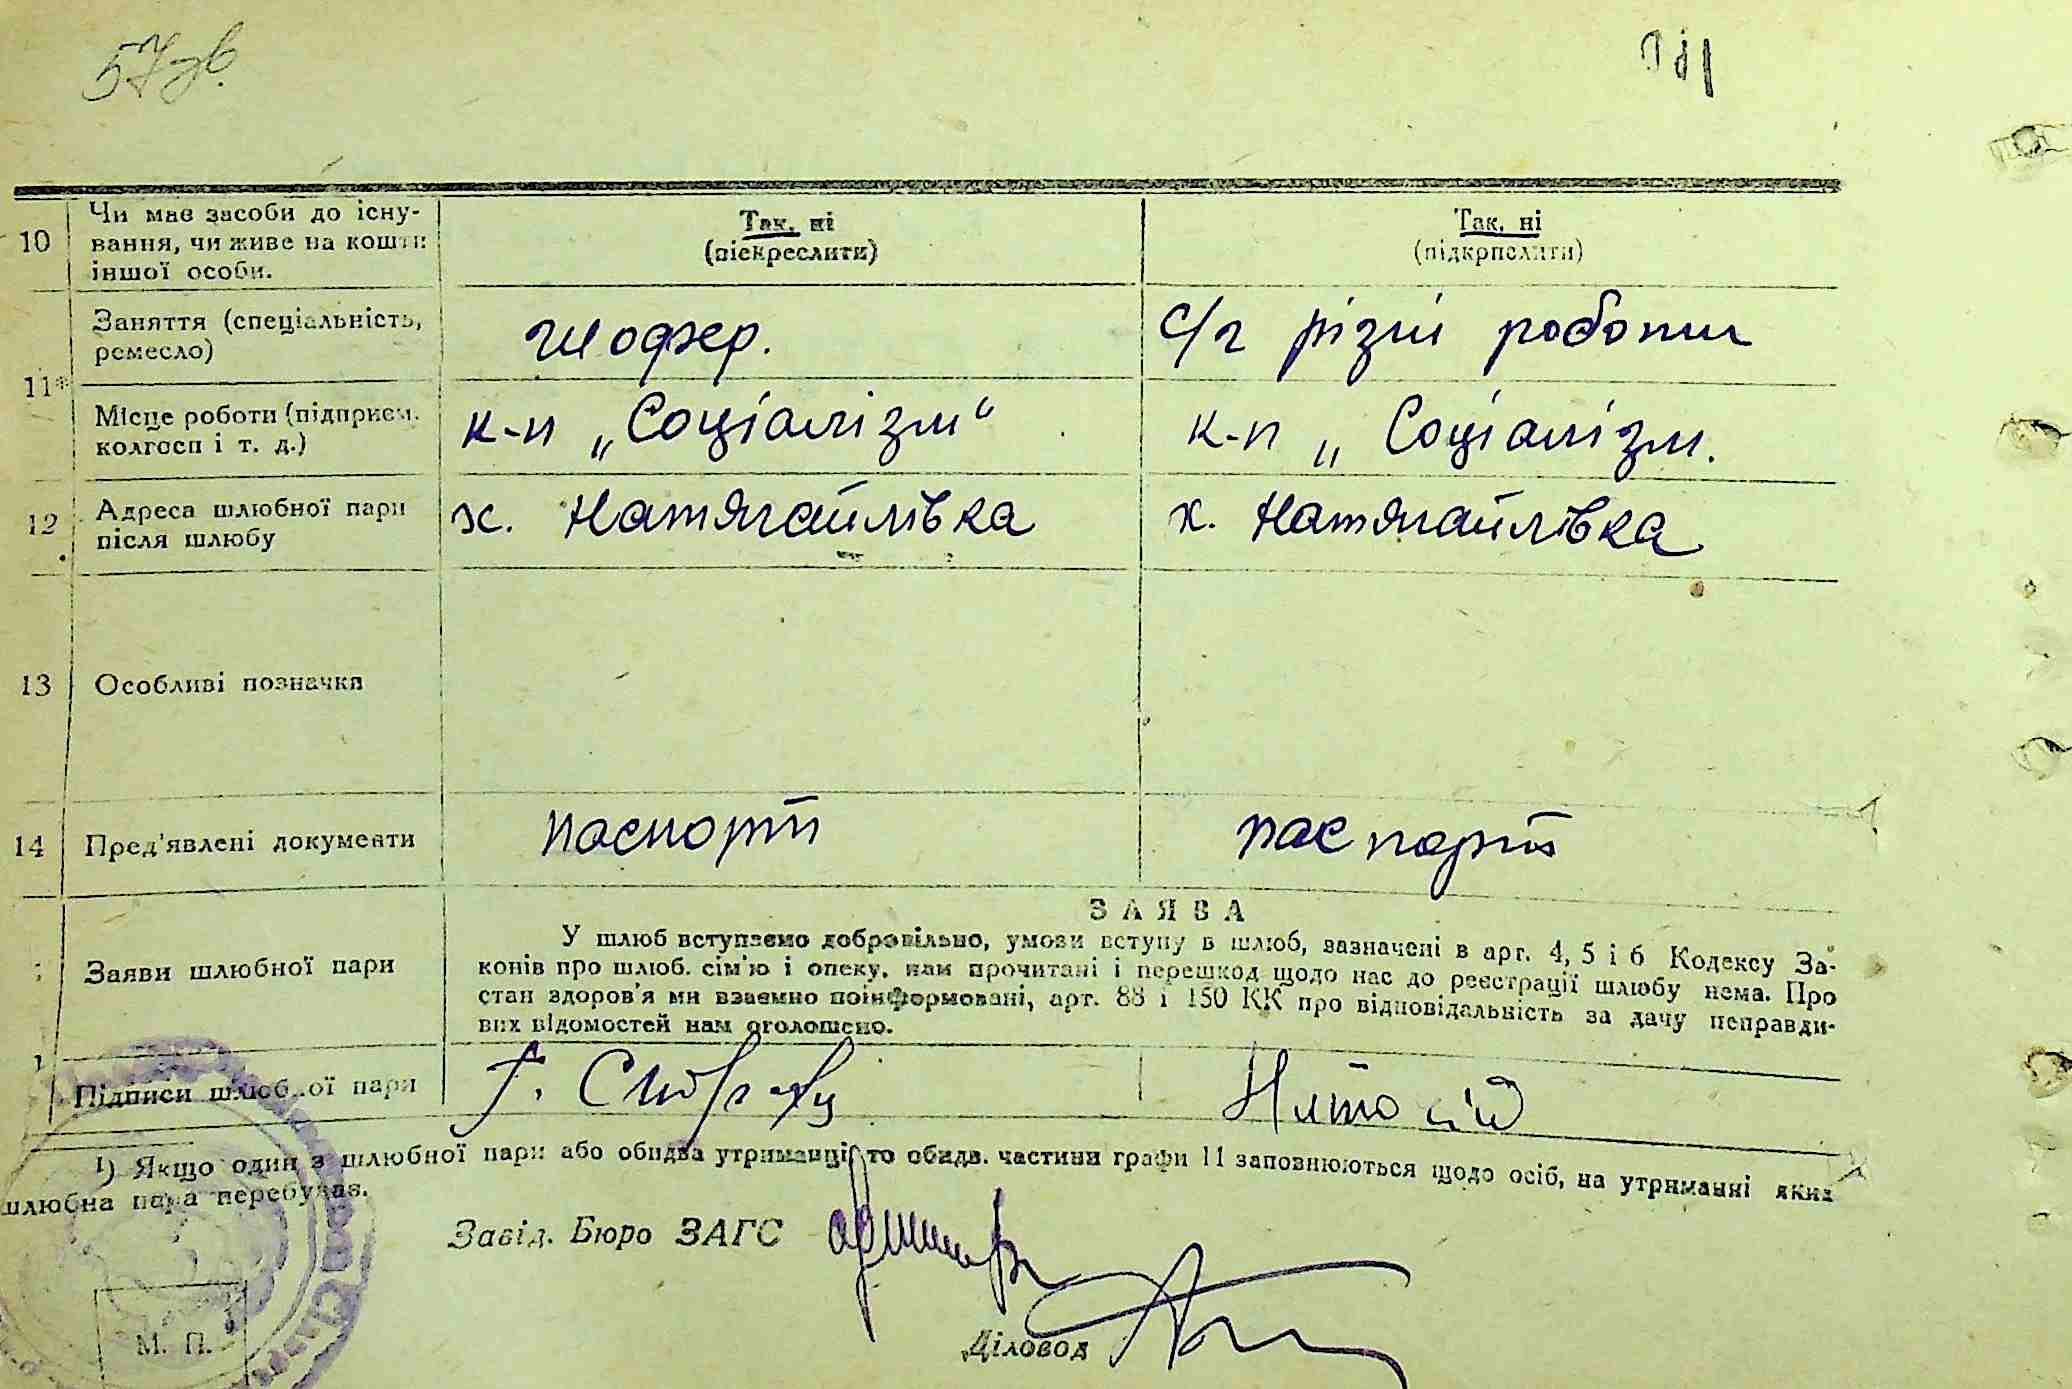 57зв.
10
Чи має засоби до існу-
вання, чи живе на кошти
іншої особи.
Так, ні
(підкреслити)
Так, ні
(підкрпслити)
11
Заняття (спеціальність,
ремесло)
шофер.
с/г різні роботи
Місце роботи (підприєм.
колгосп і т. д.)
к-п „Соціалізм“
к-п „Соціалізм.
12
Адреса шлюбної пари
після шлюбу
х. Натягайлівка
х. Натягайлівка
13
Особливі позначки
14
Пред'явлені документи
паспорт
паспорт
Заяви шлюбної пари
ЗАЯВА
У шлюб вступаємо добровільно, умови вступу в шлюб, зазначені в арт. 4, 5 і 6 Кодексу За-
конів про шлюб. сім'ю і опеку, нам прочитані і перешкод щодо нас до реєстрації шлюбу нема. Про
стан здоров'я ми взаємно поінформовані, арт. 88 і 150 КК про відповідальність за дачу неправди-
вих відомостей нам оголошено.
Підписи шлюбної пари
1) Якщо один з шлюбної пари або обидва утриманці, то обидв. частини графи 11 заповнюються щодо осіб, на утриманні яких
шлюбна пара перебуває.
Завід. Бюро ЗАГС
Діловод
М. П.